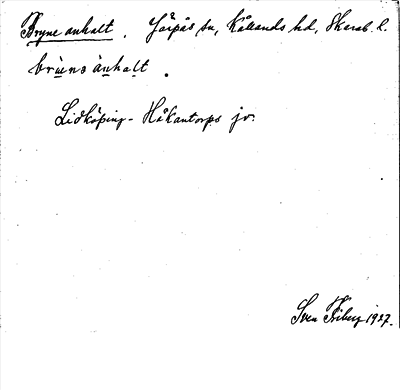 Bryne anhalt. Järpås sn, Kållands hd, Skarab. l.
brùens ànhalt.
Lidköping-Håkantorps jv.
Sven Friberg 1927.